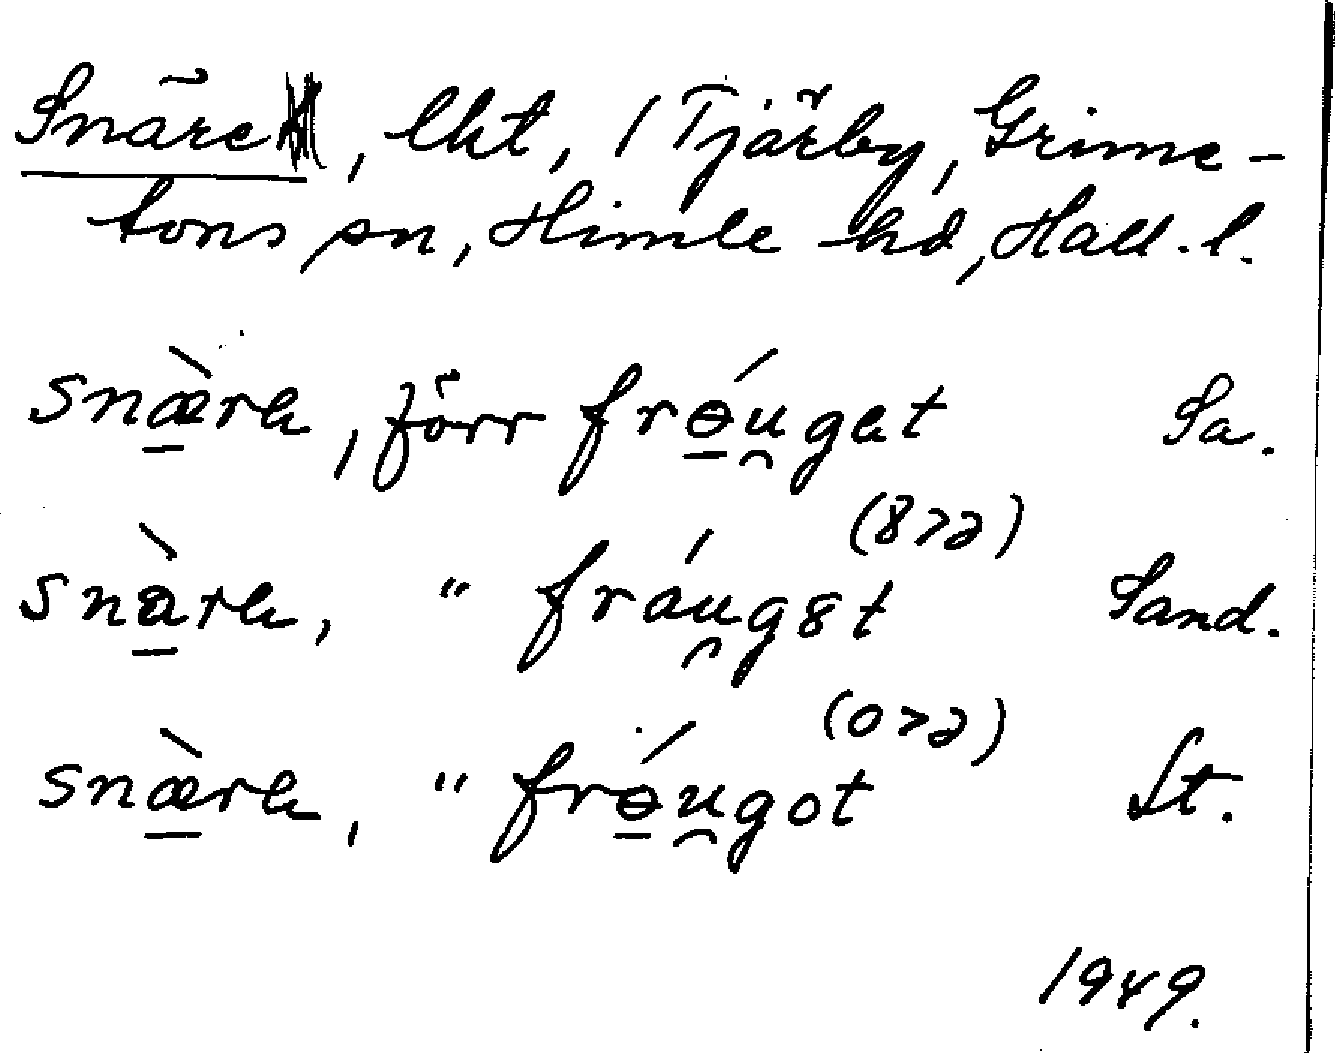 Snäre, lht, 1 Tjärby, Grime-
tons sn, Himle hd, Hall. l.
snæ̀ra, förr frɵ́u̯gat Sa.
(8>ə)
snàra, " fráu̯g8t Sand.
(o>ə)
snæ̀ra, " frɵ́u̯got St.
1949.